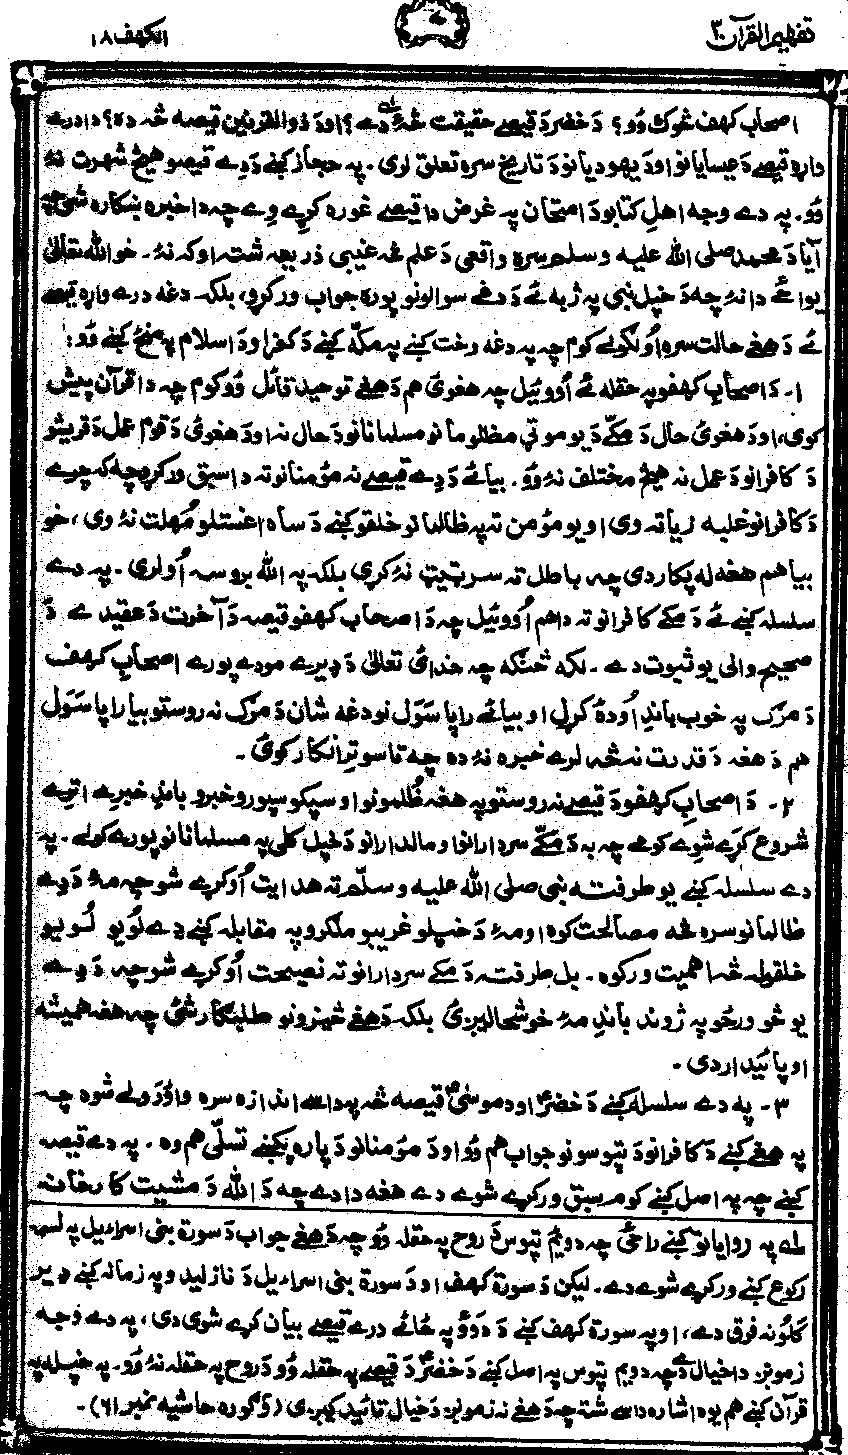 تفهیم القرآن ۳
۷
الکهف ۱۸
اصحاب کهف څوک وُو؟ دَ خضر دَ قیصے حقیقت څهٔ دے؟ اودَ ذوالقرنین قیصه څه ده؟ دا درے
واړه قیصے دَ عیسایانو اودَ یهودیانو دَ تاریخ سره تعلق لری. په حجاز کښے دَ دِے قیصو هیڅ شهرت نهٔ
وُو. په دے وجه اهلِ کتابو دَ امتحان په غرض دا قیصے غوره کړے وے چه دا خبره ښکاره شی چه
آیا دَ محمد صلی الله علیه وسلم سره واقعی دَ علم څه غیبی ذریعه شته او که نهٔ. خو الله تعالیٰ
یواځے دا نهٔ چه دَ خپل نبی په ژبه ئے دَ دغے سوالونو پوره جواب ورکړو، بلکه دغه درے واړه قیصے
ئے دَ هغے حالت سره اُولګولے کوم چه په دغه وخت کښے په مکّه کښے دَ کفر اودَ اسلام په منځ کښے وُو:
۱- دَ اصحابِ کهفو په حقله ئے اُووئیل چه هغویٔ هم دَ هغے توحید قائل وُو کوم چه دا قرآن پیش
کوی، اودَ هغویٔ حال دَ مکّے دَ یو موټی مظلومانو مسلمانانو دَ حال نه اودَ هغویٔ دَ قوم عمل دَ قریشو
دَ کافرانو دَ عمل نه هیڅ مختلف نهٔ وُو. بیا ئے دَ دِے قیصے نه مؤمنانو ته دا سبق ورکړو چه که چرے
دَ کافرانو غلبه زیاته وی او یو مؤمن ته په ظالمانو خلقو کښے دَ ساه اخستلو مُهلت نهٔ وی، خو
بیا هم هغه له پکار دی چه باطل ته سر ټیټ نهٔ کړی بلکه په الله بروسه اُولری. په دے
سلسله کښے ئے دَ مکے کافرانو ته دا هم اُووئیل چه دَ اصحاب کهفو قیصه دَ آخرت دَ عقیدے دَ
صحیح والی یو ثبوت دے. لکه څنګه چه خدائ تعالیٰ دَ ډیرے مودے پورے اصحابِ کهف
دَ مرګ په خوب باندِ اُودهٔ کړل او بیا ئے راپاسَوَل نو دغه شان دَ مرګ نه روستو بیا راپاسَوَل
هم دَ هغه دَ قدرت نه څه لرے خبره نهٔ ده چه تاسو ترِ انکار کویٔ.
۲- دَ اصحابِ کهفو دَ قیصے نه روستو په هغه ظُلمونو او سپکو سپورو خبرو باندِ خبرے اترے
شروع کړے شوِے کومے چه به دَ مکّے سردارانو او مالدارانو دَ خپل کلی په مسلمانانو پورے کولے. په
دے سلسله کښے یو طرف ته نبی صلی الله علیه وسلّم ته هدایت اُوکړے شو چه مهٔ دَ دِے
ظالمانو سره څه مصالحت کوه او مهٔ دَ خپلو غریبو ملګرو په مقابله کښے دِے لُویو لُویو
خلقو له څه اهمیت ورکوه. بل طرف ته دَ مکے سردارانو ته نصیحت اُوکړے شو چه دَ دِے
یو څو ورځو په ژوند باندِ مهٔ خوشحالیږیٔ بلکه دَ هغے څیزونو طلبګار شیٔ چه هغه همیشه
او پائیدار دی.
۳- په دے سلسله کښے دَ خضرؑ اودَ موسیٰؑ قیصه څه په داسے اندازه سره واؤرولے شوه چه
په هغے کښے دَ کافرانو دَ تپوسونو جواب هم وُو اودَ مؤمنانو دَ پاره پکښے تسلّی هم وه. په دے قیصه
کښے چه په اصل کښے کوم سبق ورکړے شوے دے هغه دا دے چه دَ الله دَ مشیت کارخانه
له په روایاتو کښے راځیٔ چه دویم تپوس دَ روح په حقله وُو چه دَ هغے جواب دَ سورة بنی اسرائیل په لسمه
رکوع کښے ورکړے شوے دے. لیکن دَ سورة کهف اودَ سورة بنی اسرائیل دَ نازلیدو په زمانه کښے ډیر
کلونه فرق دے، او په سورة کهف کښے دَ دوؤ په ځائے درے قیصے بیان کړے شوی دی، په دے وجه
زمونږه دا خیال دے چه دویم تپوس په اصل کښے دَ خضرؑ دَ قیصے په حقله وُو دَ روح په حقله نهٔ وُو. په خپله په
قرآن کښے هم یوه اشاره داسے شته چه دَ هغے نه زمونږه دَ خیال تائید کیږی (وګوره حاشیه نمبر ۶۱).